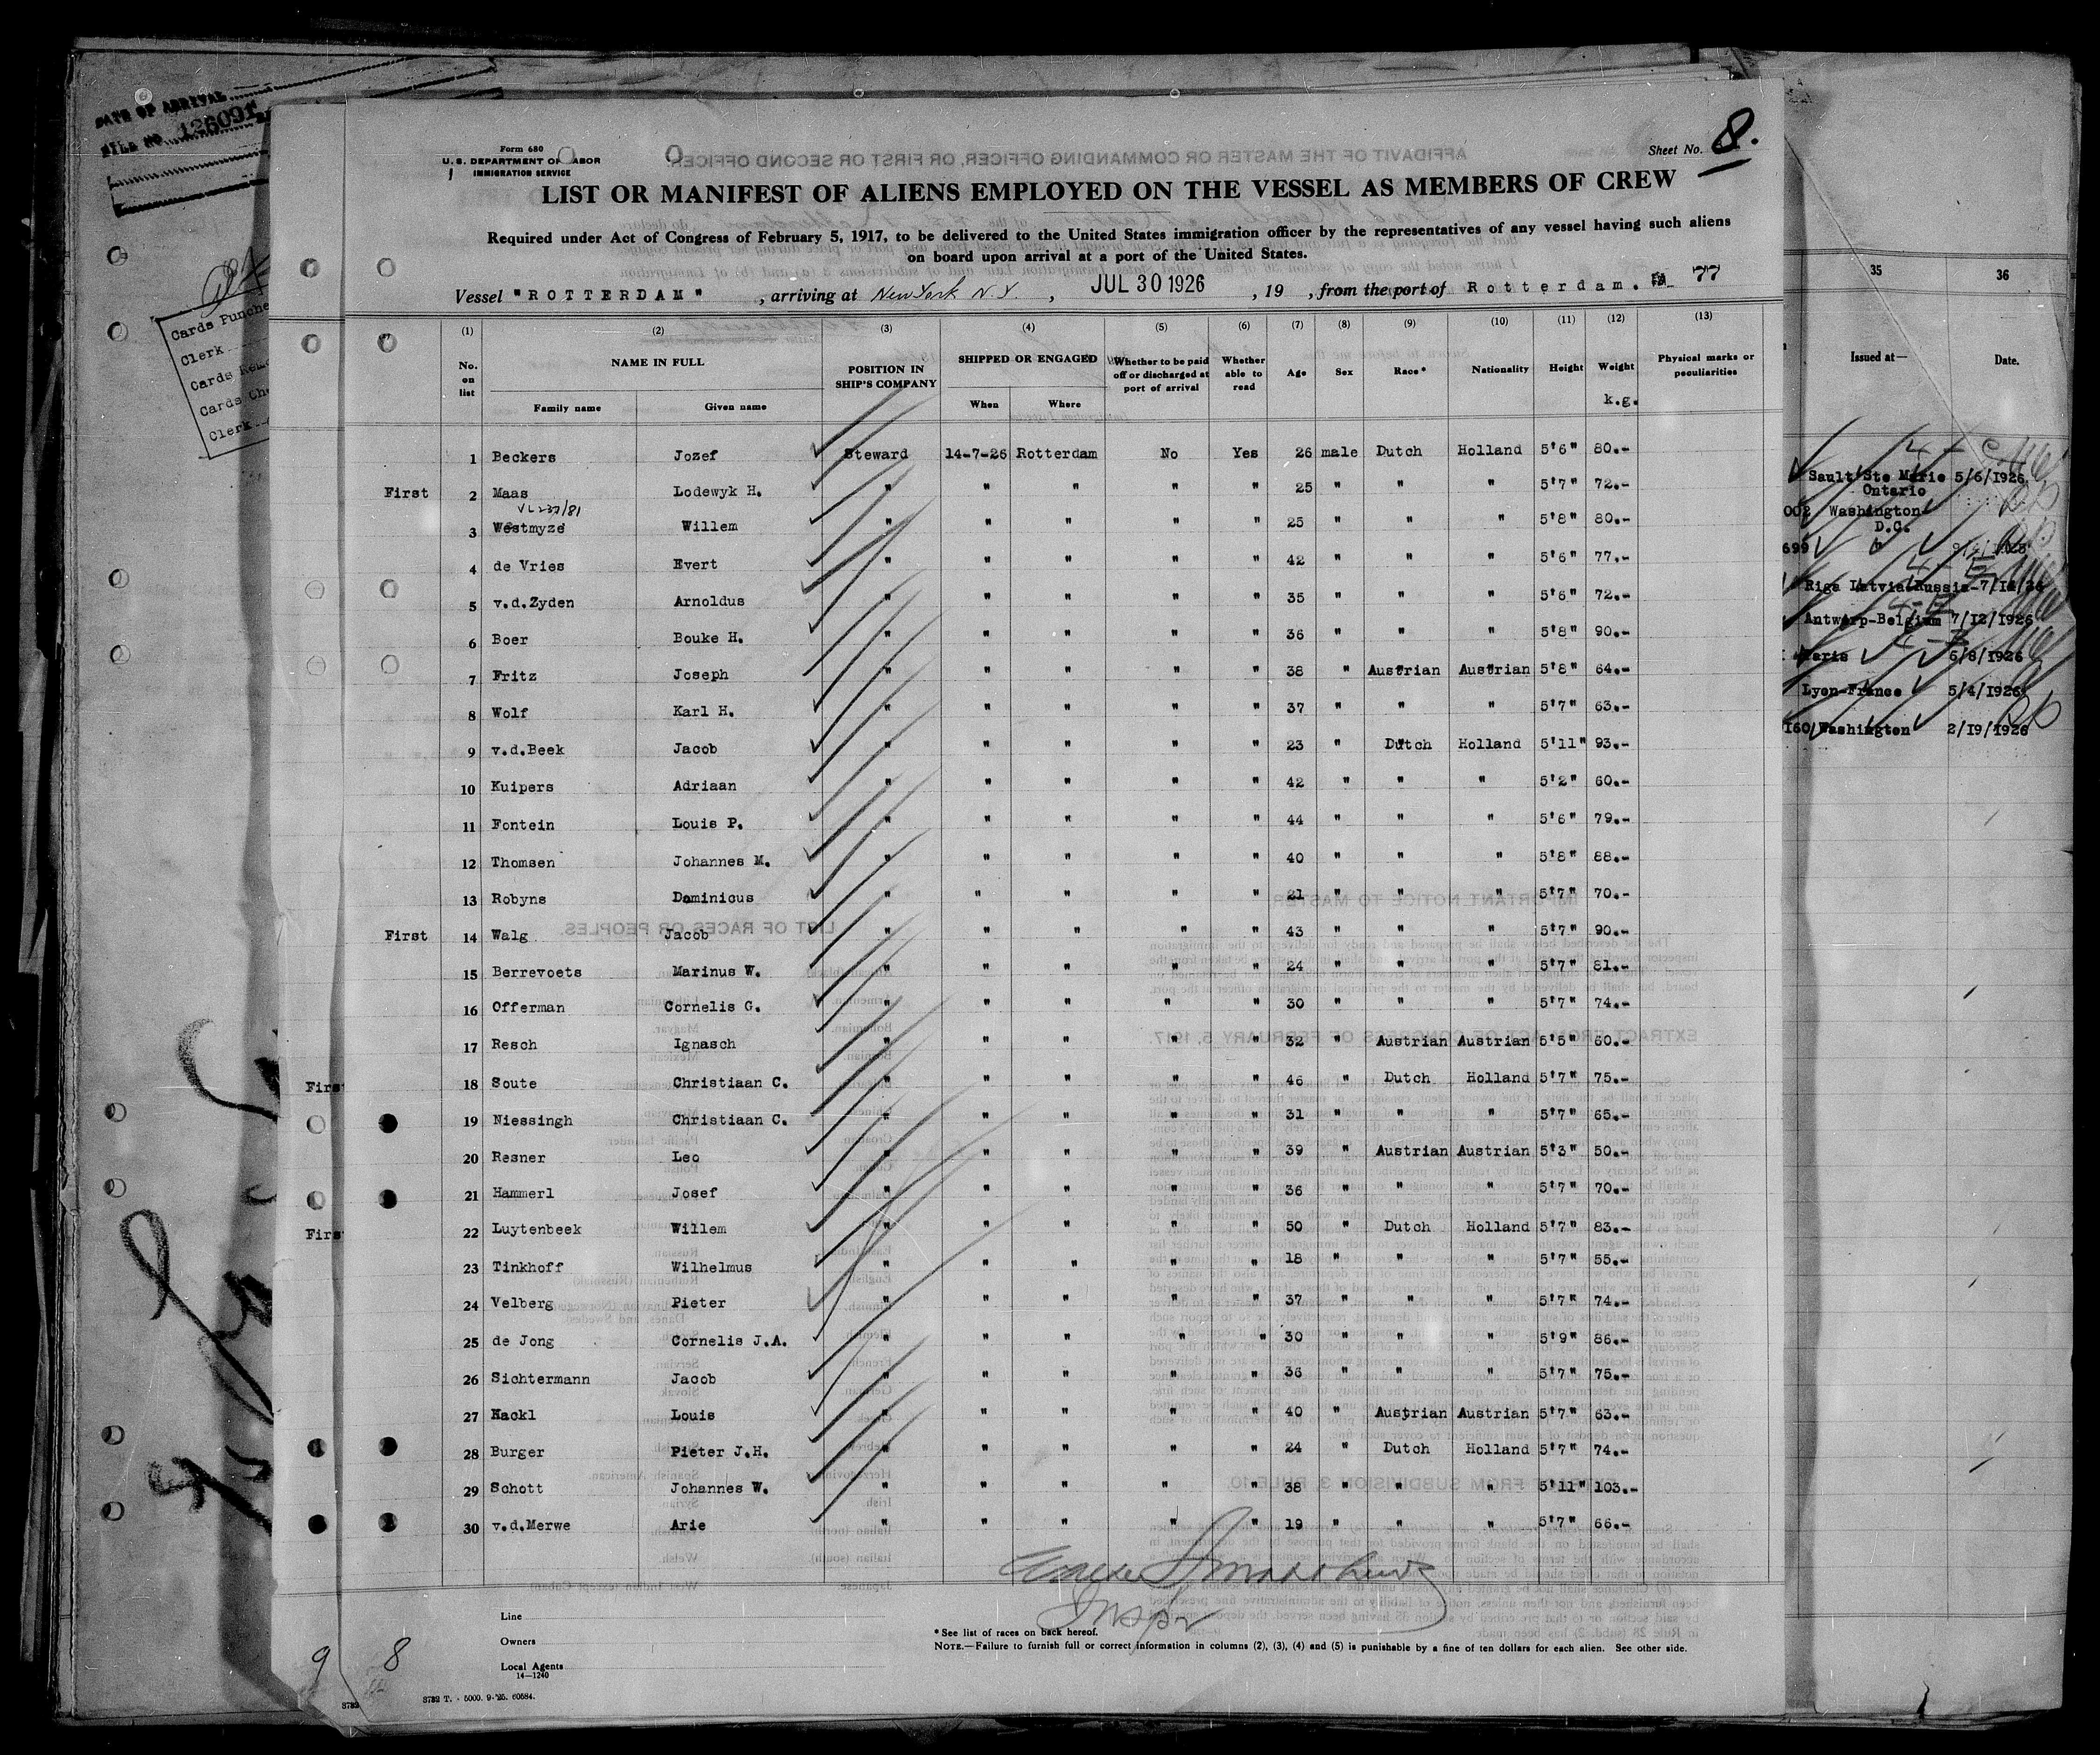 DATE OF ARRIVAL
FILE NO. 126091
Cards Punche
Clerk
Cards
Cards Che
Clerk
Form 680
U. S. DEPARTMENT OF LABOR
IMMIGRATION SERVICE
Sheet No. 8.
LIST OR MANIFEST OF ALIENS EMPLOYED ON THE VESSEL AS MEMBERS OF CREW
Required under Act of Congress of February 5, 1917, to be delivered to the United States immigration officer by the representatives of any vessel having such aliens
on board upon arrival at a port of the United States.
Vessel "ROTTERDAM" , arriving at New York N.Y. , JUL 30 1926 , 19 , from the port of Rotterdam. 77
(1) (2) (3) (4) (5) (6) (7) (8) (9) (10) (11) (12) (13)
No. on list NAME IN FULL Family name Given name POSITION IN SHIP'S COMPANY SHIPPED OR ENGAGED When Where Whether to be paid off or discharged at port of arrival Whether able to read Age Sex Race* Nationality Height Weight k.g. Physical marks or peculiarities
1 Beckers Jozef Steward 14-7-26 Rotterdam No Yes 26 male Dutch Holland 5'6" 80.-
First 2 Maas Lodewyk H. " " " " " 25 " " " 5'7" 72.-
3 Westmyze Willem " " " " " 25 " " " 5'8" 80.-
4 de Vries Evert " " " " " 42 " " " 5'6" 77.-
5 v.d.Zyden Arnoldus " " " " " 35 " " " 5'6" 72.-
6 Boer Bouke H. " " " " " 36 " " " 5'8" 90.-
7 Fritz Joseph " " " " " 38 " Austrian Austrian 5'8" 64.-
8 Wolf Karl H. " " " " " 37 " " " 5'7" 63.-
9 v.d.Beek Jacob " " " " " 23 " Dutch Holland 5'11" 93.-
10 Kuipers Adriaan " " " " " 42 " " " 5'2" 60.-
11 Fontein Louis P. " " " " " 44 " " " 5'6" 79.-
12 Thomsen Johannes M. " " " " " 40 " " " 5'8" 88.-
13 Robyns Dominicus " " " " " 21 " " " 5'7" 70.-
First 14 Walg Jacob " " " " " 43 " " " 5'7" 90.-
15 Berrevoets Marinus W. " " " " " 24 " " " 5'7" 81.-
16 Offerman Cornelis G. " " " " " 30 " " " 5'7" 74.-
17 Resch Ignasch " " " " " 32 " Austrian Austrian 5'5" 60.-
18 Soute Christiaan C. " " " " " 46 " Dutch Holland 5'7" 75.-
19 Niessingh Christiaan C. " " " " " 31 " " " 5'7" 65.-
20 Resner Leo " " " " " 39 " Austrian Austrian 5'3" 50.-
21 Hammerl Josef " " " " " 36 " " " 5'7" 70.-
22 Luytenbeek Willem " " " " " 50 " Dutch Holland 5'7" 83.-
23 Tinkhoff Wilhelmus " " " " " 18 " " " 5'7" 55.-
24 Velberg Pieter " " " " " 37 " " " 5'7" 74.-
25 de Jong Cornelis J.A. " " " " " 30 " " " 5'9" 86.-
26 Sichtermann Jacob " " " " " 36 " " " 5'7" 75.-
27 Hackl Louis " " " " " 40 " Austrian Austrian 5'7" 63.-
28 Burger Pieter J.H. " " " " " 24 " Dutch Holland 5'7" 74.-
29 Schott Johannes W. " " " " " 38 " " " 5'11" 103.-
30 v.d.Merwe Arie " " " " " 19 " " " 5'7" 66.-
Inspr
Line
Owners
Local Agents
14—1240
* See list of races on back hereof.
NOTE.—Failure to furnish full or correct information in columns (2), (3), (4) and (5) is punishable by a fine of ten dollars for each alien. See other side.
9 8
8782 T. - 5000. 9-'25. 60584.
35 36
Issued at— Date.
Sault Ste Marie Ontario 5/6/1926
Washington D.C.
Riga Latvia Russia
Antwerp-Belgium 7/12/1926
Paris 6/8/1926
Lyon-France 5/4/1926
160/Washington 2/19/1926